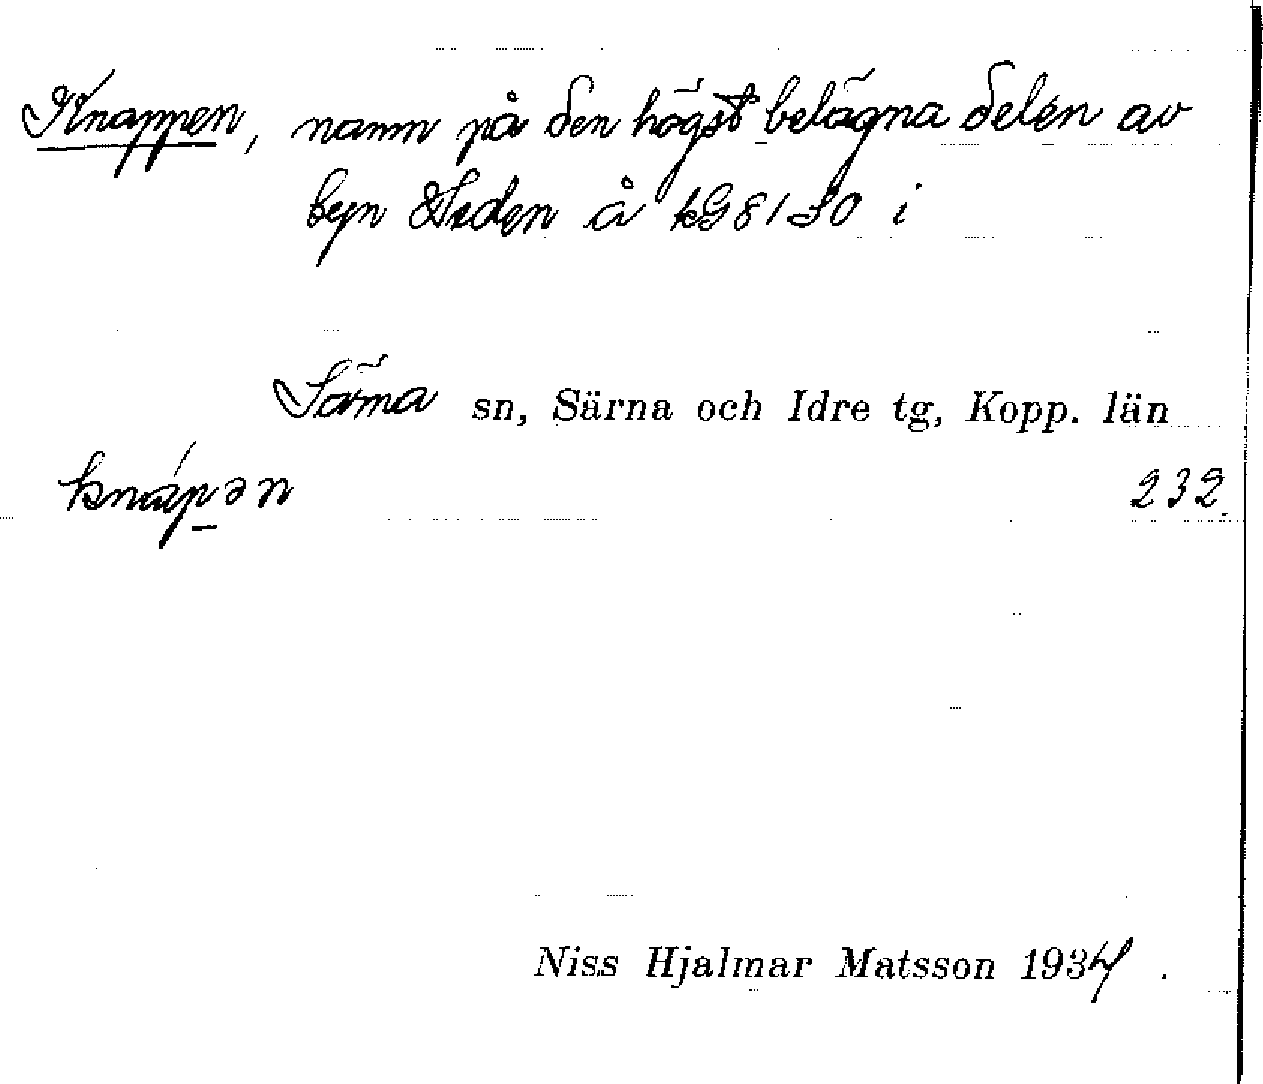 Knappen, namn på den högst belägna delen av
byn Heden å kG 8130 i
Särna sn, Särna och Idre tg, Kopp. län
knápən 232.
Niss Hjalmar Matsson 1934.